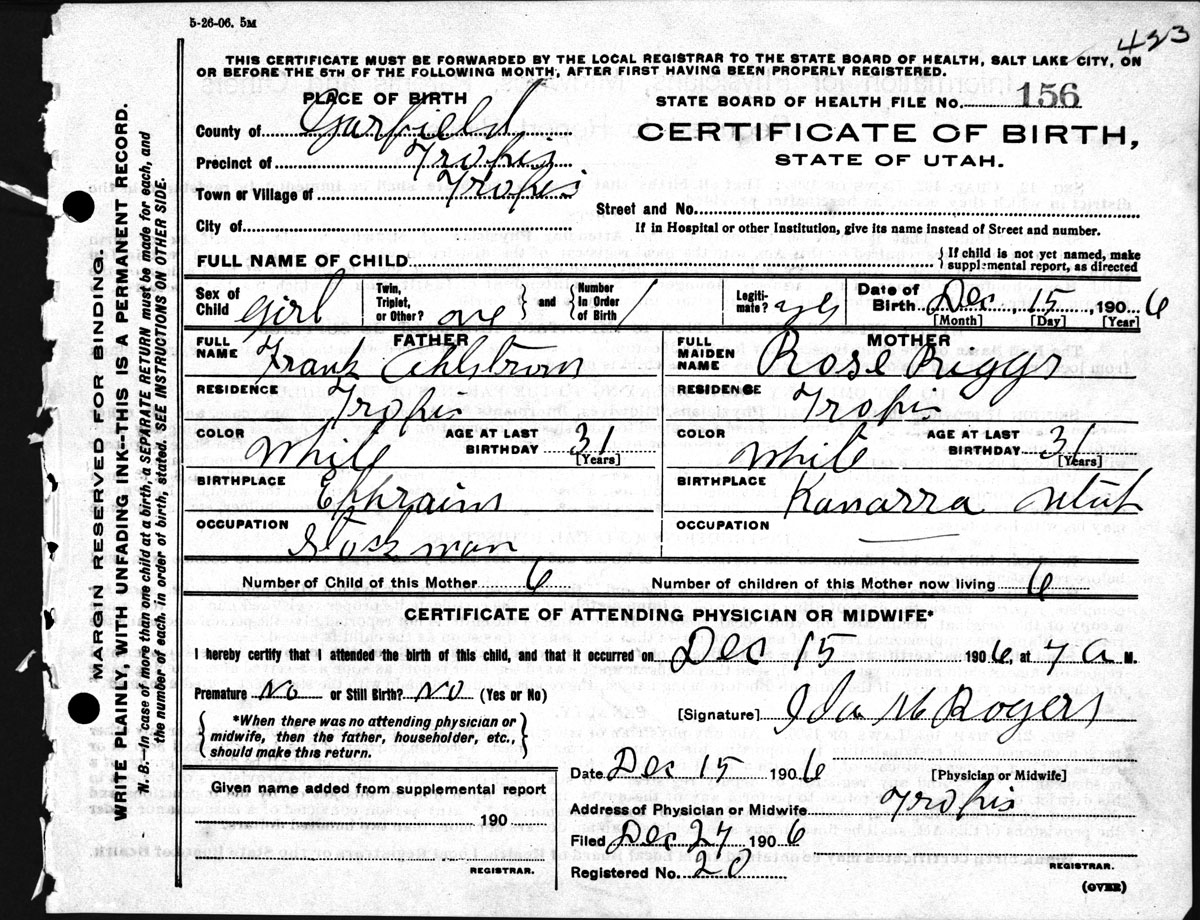 5-26-06. 5M
423
THIS CERTIFICATE MUST BE FORWARDED BY THE LOCAL REGISTRAR TO THE STATE BOARD OF HEALTH, SALT LAKE CITY, ON
OR BEFORE THE 5TH OF THE FOLLOWING MONTH, AFTER FIRST HAVING BEEN PROPERLY REGISTERED.
PLACE OF BIRTH
STATE BOARD OF HEALTH FILE No. 156
County of Garfield
CERTIFICATE OF BIRTH,
Precinct of Tropic
STATE OF UTAH.
Town or Village of Tropic
Street and No.
City of
If in Hospital or other Institution, give its name instead of Street and number.
FULL NAME OF CHILD
{ If child is not yet named, make
supplemental report, as directed
Sex of Child girl Twin, Triplet, or Other? one } and { Number in Order of Birth 1 Legiti-mate? yes Date of Birth Dec, 15, 1906
[Month] [Day] [Year]
FATHER MOTHER
FULL NAME Frank Ahlstrom FULL MAIDEN NAME Rose Riggs
RESIDENCE Tropic RESIDENCE Tropic
COLOR White AGE AT LAST BIRTHDAY 31 [Years] COLOR White AGE AT LAST BIRTHDAY 31 [Years]
BIRTHPLACE Ephraim BIRTHPLACE Kanarra Utah
OCCUPATION Stockman OCCUPATION
Number of Child of this Mother 6 Number of children of this Mother now living 6
CERTIFICATE OF ATTENDING PHYSICIAN OR MIDWIFE*
I hereby certify that I attended the birth of this child, and that it occurred on Dec 15 1906, at 7 a M.
Premature No or Still Birth? No (Yes or No)
[Signature] Ida M Rogers
{ *When there was no attending physician or
midwife, then the father, householder, etc.,
should make this return. }
Date Dec 15 1906 [Physician or Midwife]
Given name added from supplemental report
Address of Physician or Midwife Tropic
190
Filed Dec 27 1906
REGISTRAR.
Registered No. 20
REGISTRAR.
(OVER)
MARGIN RESERVED FOR BINDING.
WRITE PLAINLY, WITH UNFADING INK--THIS IS A PERMANENT RECORD.
N. B.--In case of more than one child at a birth, a SEPARATE RETURN must be made for each, and
the number of each, in order of birth, stated. SEE INSTRUCTIONS ON OTHER SIDE.